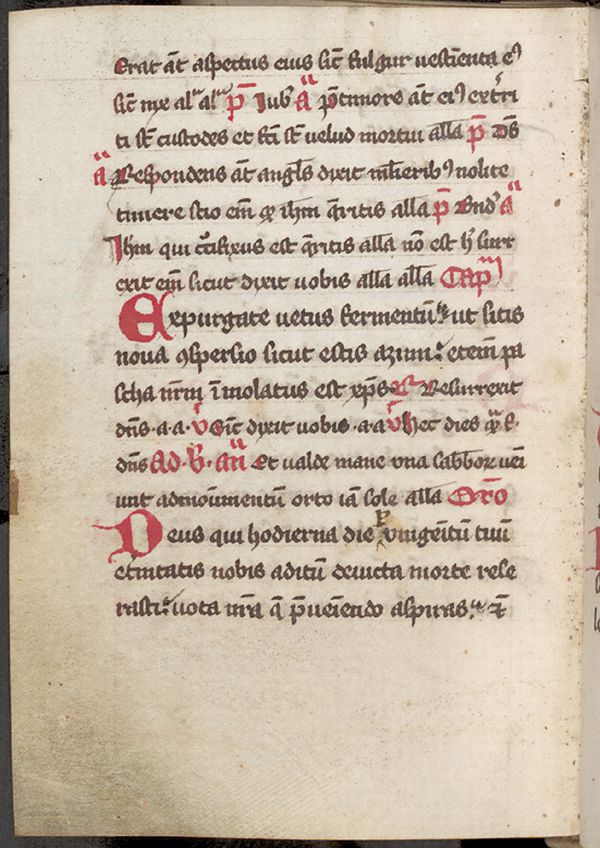 Erat āt aspectus eius sic̄ fulgur uestim̄enta eꝰ
sic̄ nix al'a al'a p̄ Iub' a p̄ timore āt eiꝰ exter̄ri
ti st̄ custodes et fc̄i st̄ velud mortui all̄a p̄ Dn̄s
a Respondens āt angl̄s dixit ml̄ieribꝰ nolite
timere scio em̄ qp ih̄m q̄ritis all̄a p̄ Bn̄d' a
Ih̄m qui cruc̄ifixus est q̄ritis all̄a nō est h' surr
exit em̄ sicut dixit uobis all̄a all̄a Cap̄m
Expurgate uetus fermentū ut sitis
noua ꝯspersio sicut estis azimi etem̄ pa
scha nr̄m īmolatus est xp̄s R Resurrexit
dn̄s·a·a· v̄ Sic̄ dixit uobis·a·a v̄ hec dies q̄ f·
dn̄s Ad·b̄·an̄ Et ualde mane vna sabb̄or uēi
unt admoūmentū orto iā sole all̄a Or̄o
Deus qui hodierna die p vnigenitū tuū
etn̄itatis nobis aditū deuicta morte rese
rasti uota nr̄a q̄ p̄ueniendo aspiras ⁊c̄